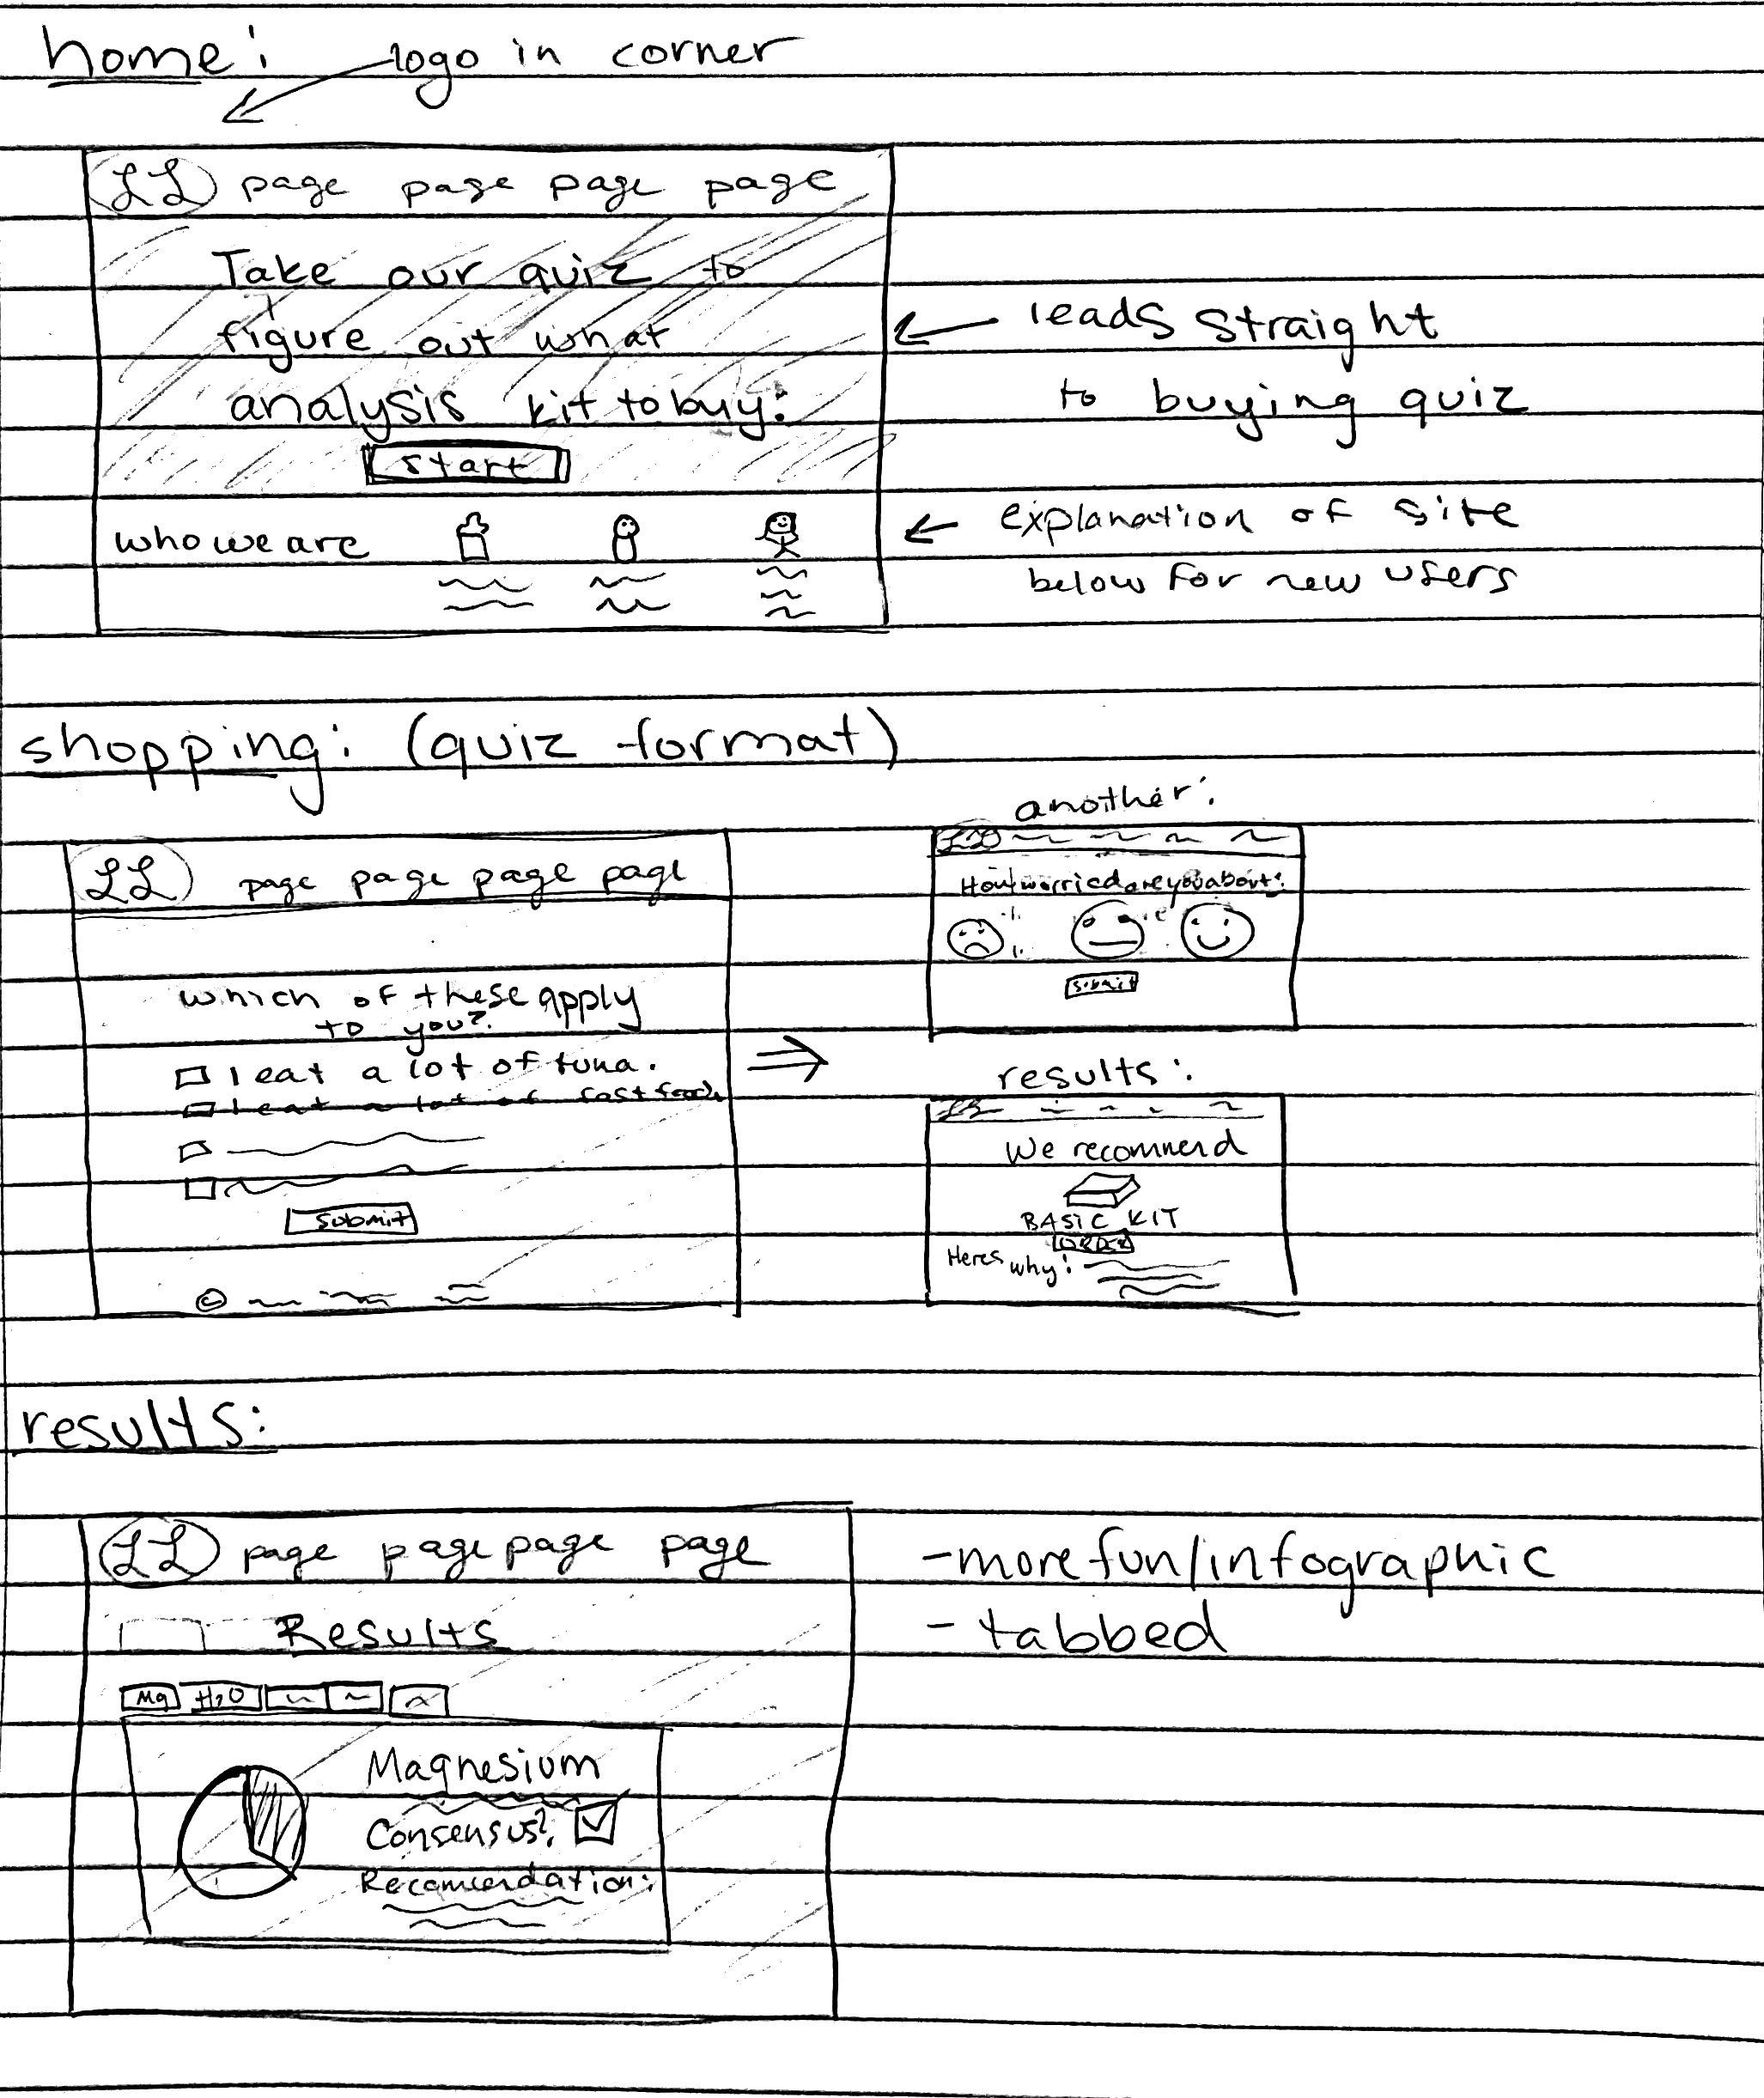 home:
logo in corner
LL page page page page
Take our quiz to
figure out what
analysis kit to buy:
start
leads straight
to buying quiz
who we are
explanation of site
below for new users
shopping: (quiz format)
LL page page page page
which of these apply
to you?
I eat a lot of tuna.
I eat a lot of fast food.
submit
©
another:
LL
How worried are you about:
submit
results:
We recommend
BASIC KIT
ORDER
Heres why:
results:
LL page page page page
Results
Mg H2O
Magnesium
Consensus?
Recommendation:
-more fun/infographic
- tabbed